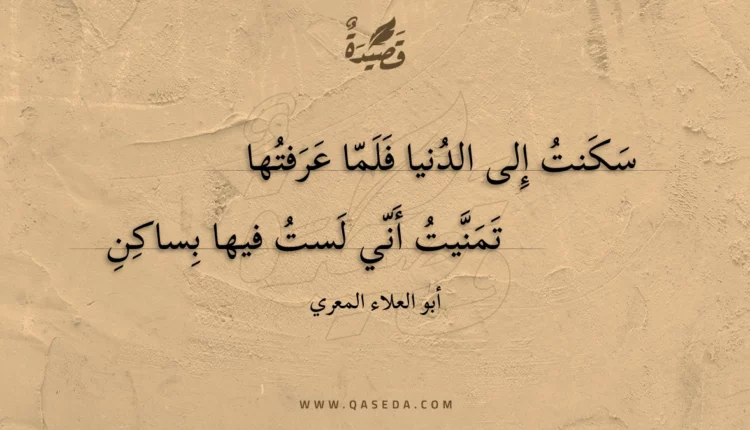 قَصِيدَةٌ
سَكَنتُ إِلى الدُنيا فَلَمّا عَرَفتُها
تَمَنَّيتُ أَنّي لَستُ فيها بِساكِنِ
أبو العلاء المعري
WWW.QASEDA.COM